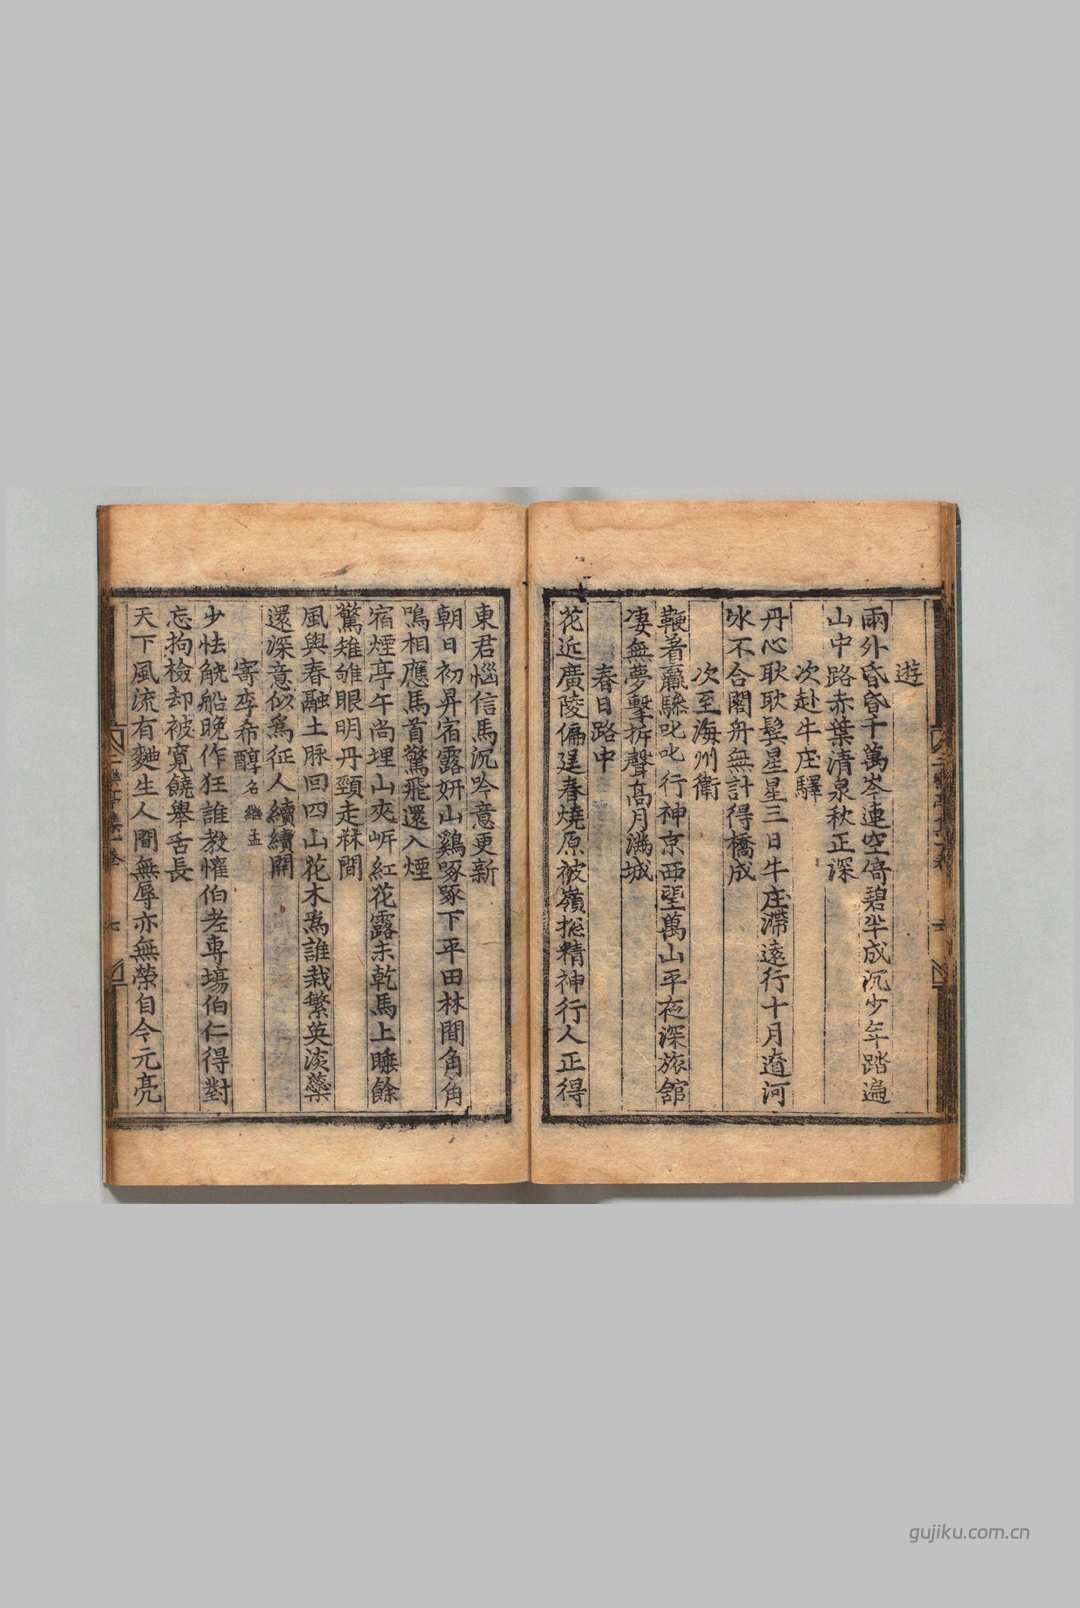 遊
雨外昏昏千萬岑連空倚碧半成沉少年踏遍
山中路赤葉清泉秋正深
次赴牛庄驛
丹心耿耿鬂星星三日牛庄滯遠行十月遼河
氷不合閣舟無計得橋成
次至海州衛
鞭着驪叱叱行神京西望萬山平夜深旅舘
凄無夢擊柝聲高月滿城
春日路中
花近廣陵偏逞春燒原被嶺捴精神行人正得
東君惱信馬沉吟意更新
朝日初昇宿露妍山鷄啄啄下平田林間角角
鳴相應馬首驚飛還入煙
宿煙亭午尚埋山夾岍紅花露未乾馬上睡餘
驚雉雊眼明丹頸走秝間
風與春融土脉回四山花木爲誰栽繁英淡蘂
還深意似爲征人續續開
寄李希醇名繼孟
少怯觥船晚作狂誰教懽伯老專塲伯仁得對
忘拘檢却被寬饒舉舌長
天下風流有麯生人間無辱亦無榮自今元亮
gujiku.com.cn